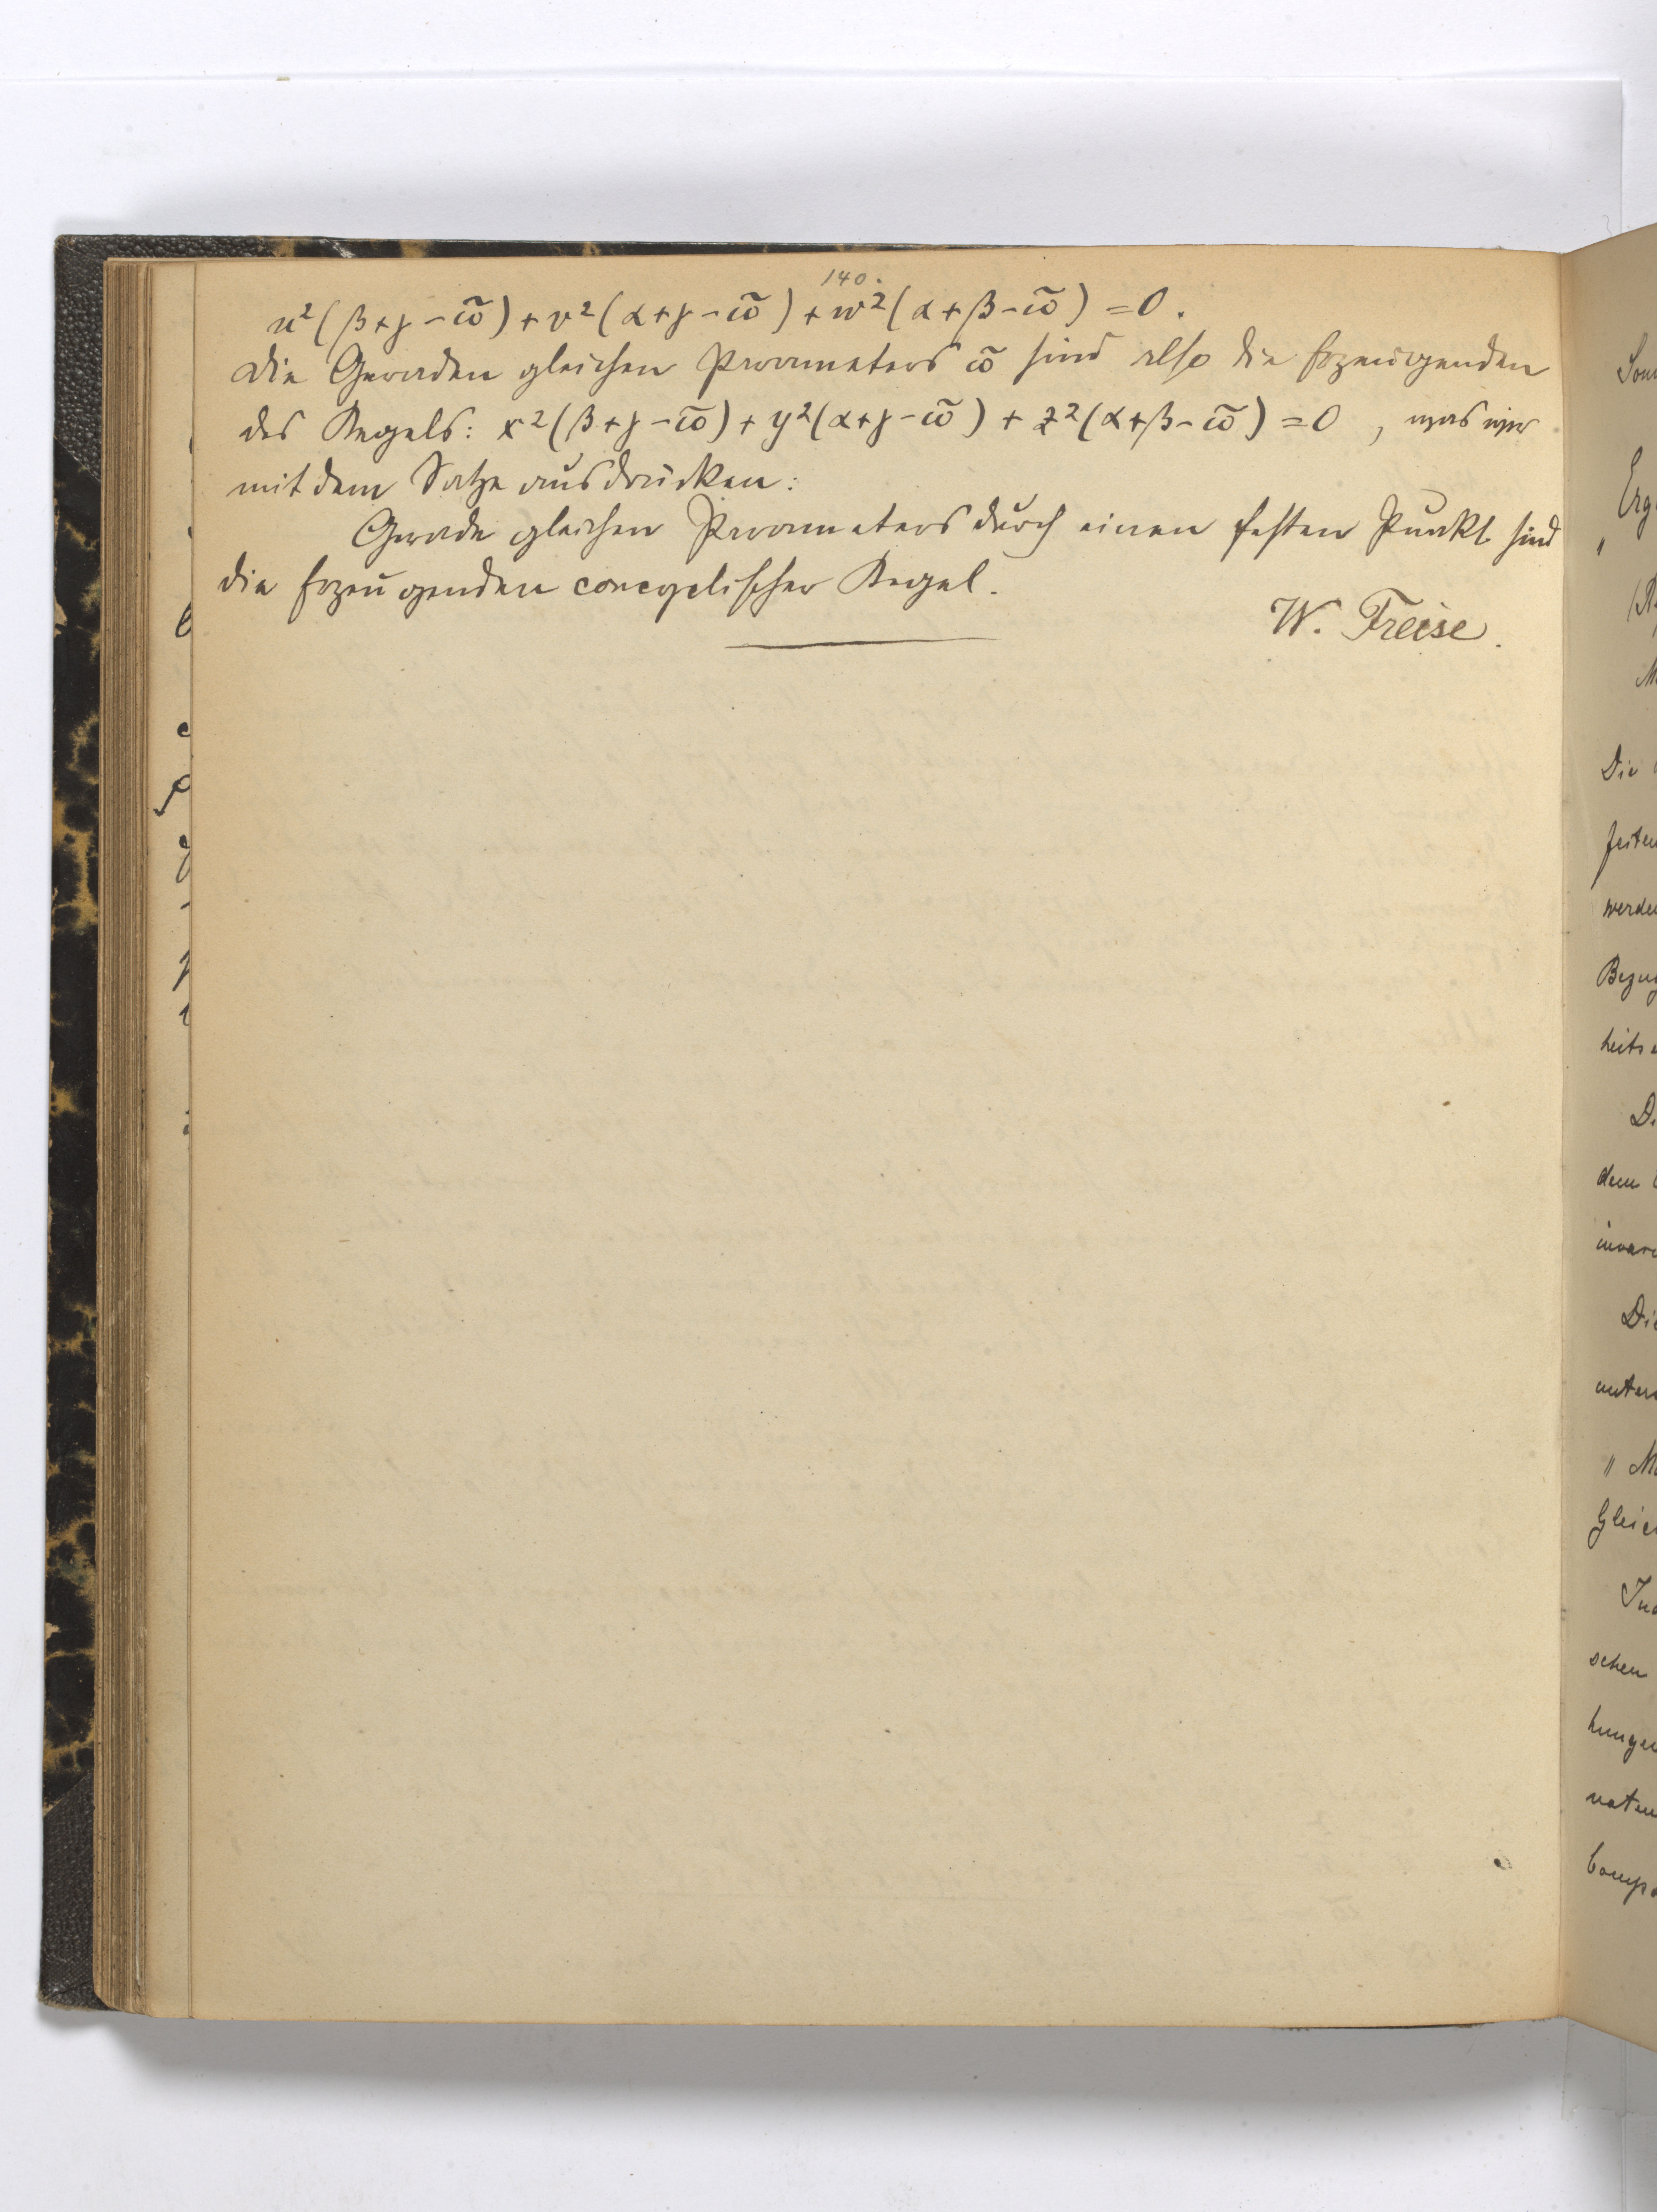 140.
u²(β+γ-ω̃)+v²(α+γ-ω̃)+w²(α+β-ω̃)=0.
Die Geraden gleichen Parameters ω̃ sind also die Erzeugenden
des Kegels: x²(β+γ-ω̃)+y²(α+γ-ω̃)+z²(α+β-ω̃)=0, was wir
mit dem Satze ausdrücken:
Gerade gleichen Parameters durch einen festen Punkt sind
die Erzeugenden concyclischer Kegel.
W. Freise.
Die
werde
dem
Die
schen